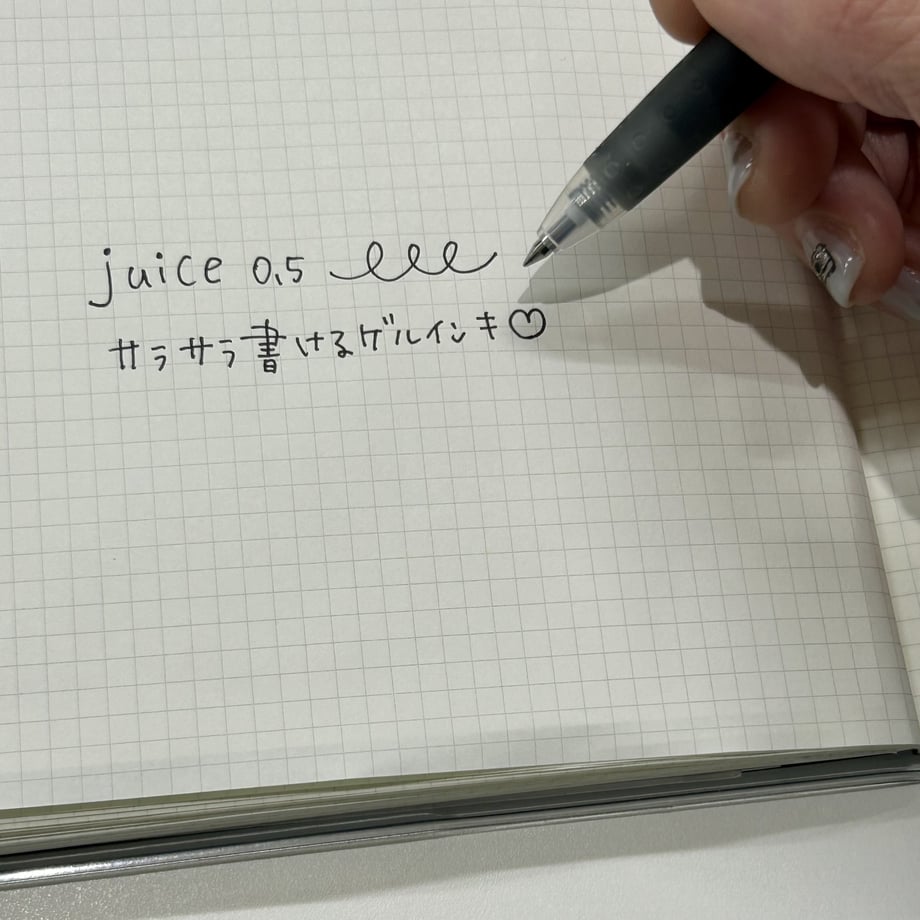 juice 0.5
サラサラ書けるゲルインキ♡